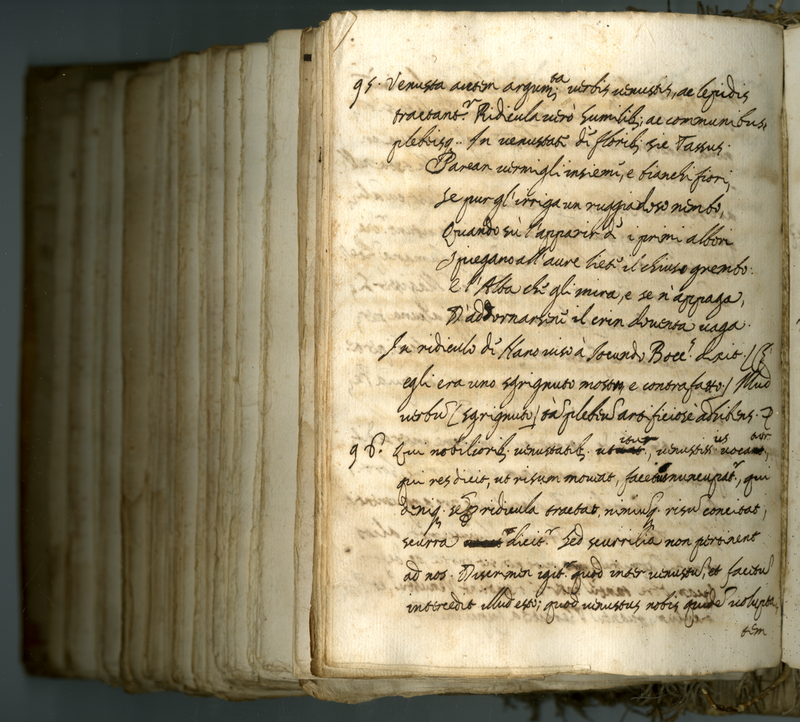 95. Venusta autem argum:ta verbis venustis, ac lepidis
tractant.r Ridicula verò humilib; ac communibus,
plebisq.. In venustat. de florib; sic Tassus.
Parean vermigli insieme, e bianchi fiori,
Se pur gl'irriga un ruggiadoso nembo,
Quando sù l'apparir de i primi albori
Spiegano all'aure liete il chiuso grembo:
E l'Alba che gli mira, e se n'appaga,
D'addornarsene il crin diventa vaga.
In ridiculo de viso à Iocundo Bocc.
egli era uno sgrignuto mostro e contrafatto./ Illud
verbu (sgrignuto) tā plebeu artificiose adhibens.
96. Qui nobiliorib; venustatib. utitur, venustius vocatur,
qui res dicit, ut risum moveat, facetus nuncupat.r, qui
deniq. se p ridicula tractat, nimiusq. risu concitat,
scurra dicit.r Sed scurrilia non pertinent
ad nos. Discrimen igit.r quod inter venustu, et facetu
intercedit illud est; quod venustus nobis quide volupta
tem